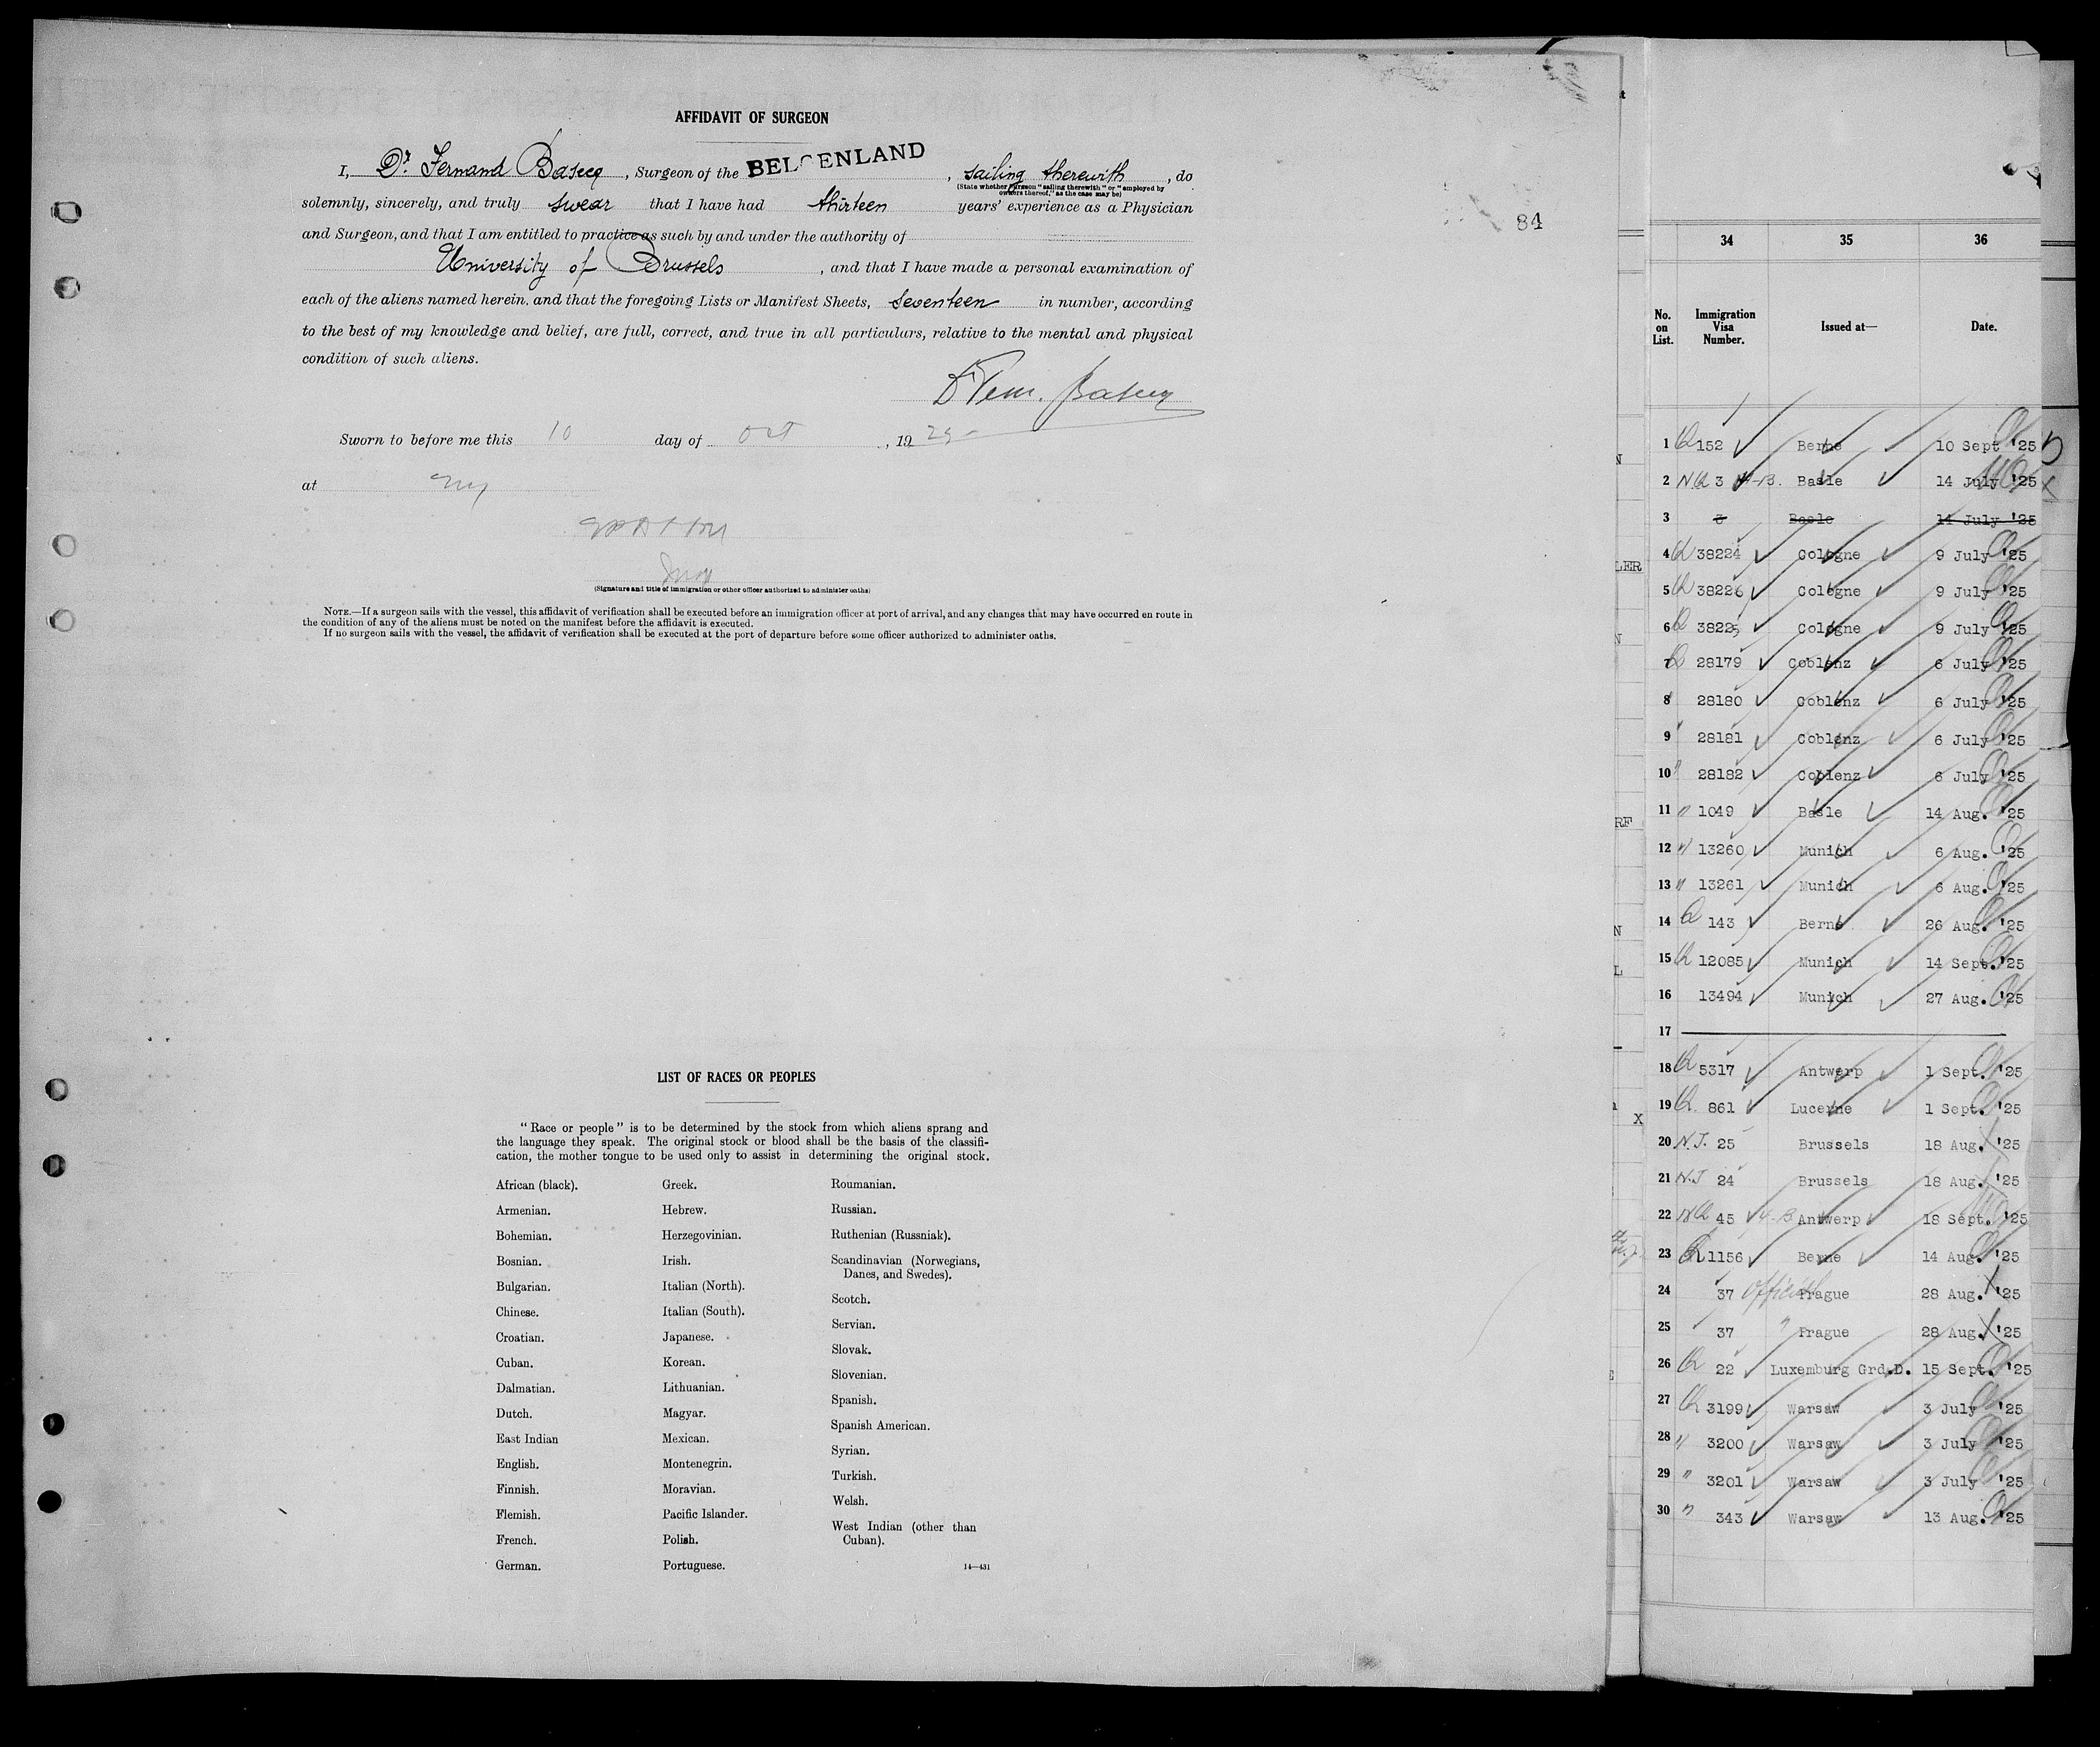 AFFIDAVIT OF SURGEON
I, Dr Fernand Basecq, Surgeon of the BELGENLAND, sailing therewith, do
(State whether surgeon "sailing therewith" or "employed by
owners thereof," as the case may be)
solemnly, sincerely, and truly swear that I have had thirteen years' experience as a Physician
and Surgeon, and that I am entitled to practice as such by and under the authority of
University of Brussels, and that I have made a personal examination of
each of the aliens named herein, and that the foregoing Lists or Manifest Sheets, seventeen in number, according
to the best of my knowledge and belief, are full, correct, and true in all particulars, relative to the mental and physical
condition of such aliens.
Sworn to before me this 10 day of Oct, 1925
at NY
(Signature and title of immigration or other officer authorized to administer oaths)
NOTE.—If a surgeon sails with the vessel, this affidavit of verification shall be executed before an immigration officer at port of arrival, and any changes that may have occurred en route in
the condition of any of the aliens must be noted on the manifest before the affidavit is executed.
If no surgeon sails with the vessel, the affidavit of verification shall be executed at the port of departure before some officer authorized to administer oaths.
84
LIST OF RACES OR PEOPLES
"Race or people" is to be determined by the stock from which aliens sprang and
the language they speak. The original stock or blood shall be the basis of the classifi-
cation, the mother tongue to be used only to assist in determining the original stock.
African (black).
Armenian.
Bohemian.
Bosnian.
Bulgarian.
Chinese.
Croatian.
Cuban.
Dalmatian.
Dutch.
East Indian
English.
Finnish.
Flemish.
French.
German.
Greek.
Hebrew.
Herzegovinian.
Irish.
Italian (North).
Italian (South).
Japanese.
Korean.
Lithuanian.
Magyar.
Mexican.
Montenegrin.
Moravian.
Pacific Islander.
Polish.
Portuguese.
Roumanian.
Russian.
Ruthenian (Russniak).
Scandinavian (Norwegians,
Danes, and Swedes).
Scotch.
Servian.
Slovak.
Slovenian.
Spanish.
Spanish American.
Syrian.
Turkish.
Welsh.
West Indian (other than
Cuban).
14—431
34 35 36
No. on List. Immigration Visa Number. Issued at— Date.
1 Q 152 Berne 10 Sept '25
2 NQ 3 4-B. Basle 14 July '25
3 3 Basle 14 July '25
4 Q 38224 Cologne 9 July '25
5 Q 38226 Cologne 9 July '25
6 Q 38225 Cologne 9 July '25
7 Q 28179 Coblenz 6 July '25
8 " 28180 Coblenz 6 July '25
9 " 28181 Coblenz 6 July '25
10 " 28182 Coblenz 6 July '25
11 " 1049 Basle 14 Aug. '25
12 " 13260 Munich 6 Aug. '25
13 " 13261 Munich 6 Aug. '25
14 Q 143 Berne 26 Aug. '25
15 Q 12085 Munich 14 Sept. '25
16 13494 Munich 27 Aug. '25
17
18 Q 5317 Antwerp 1 Sept. '25
19 Q. 861 Lucerne 1 Sept. '25
20 N.J. 25 Brussels 18 Aug. '25
21 N.J 24 Brussels 18 Aug. '25
22 NQ 45 4-B Antwerp 18 Sept. '25
23 Q 1156 Berne 14 Aug. '25
24 37 Official Prague 28 Aug. '25
25 37 " Prague 28 Aug. '25
26 Q 22 Luxemburg Grd.D. 15 Sept. '25
27 Q 3199 Warsaw 3 July '25
28 " 3200 Warsaw 3 July '25
29 " 3201 Warsaw 3 July '25
30 " 343 Warsaw 13 Aug. '25